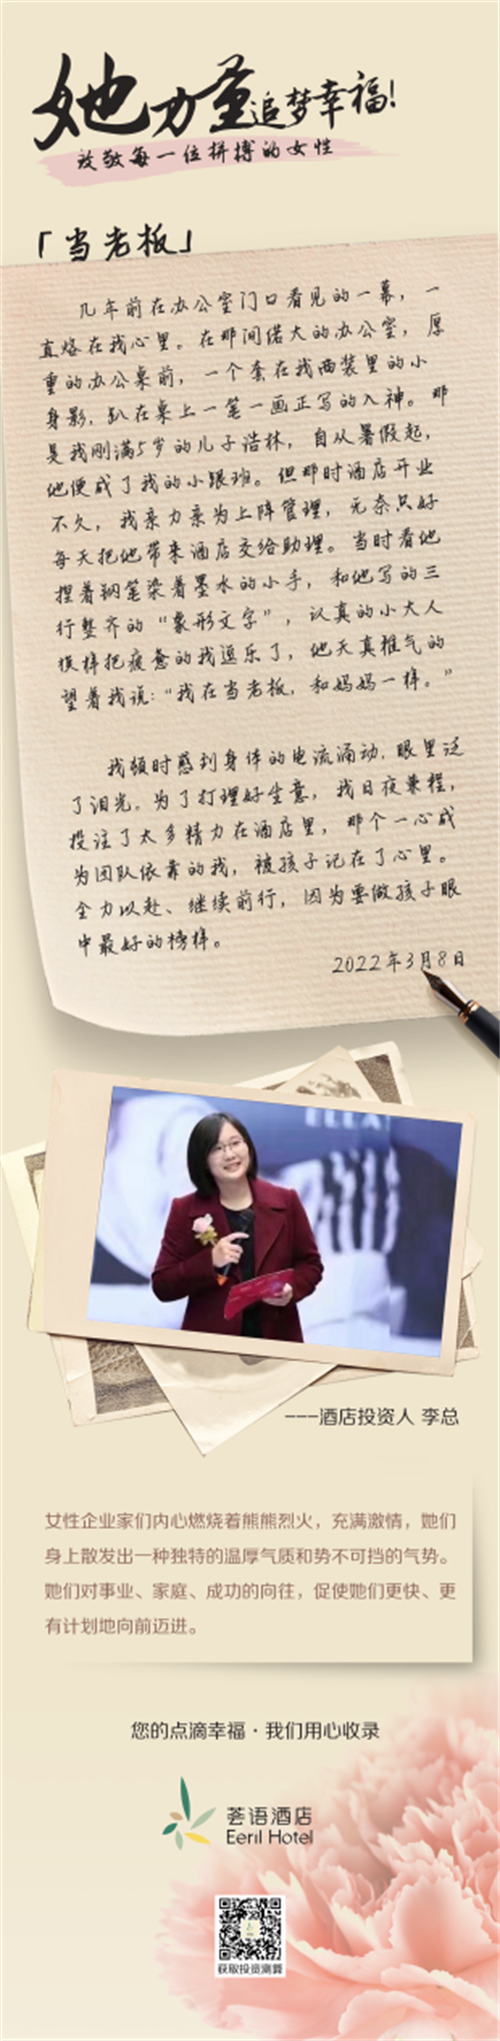 她力量追梦幸福!
致敬每一位拼搏的女性
「当老板」
几年前在办公室门口看见的一幕，一
直烙在我心里。在那间偌大的办公室，厚
重的办公桌前，一个套在我西装里的小
身影，趴在桌上一笔一画正写的入神。那
是我刚满5岁的儿子浩林，自从暑假起，
他便成了我的小跟班。但那时酒店开业
不久，我亲力亲为上阵管理，无奈只好
每天把他带来酒店交给助理。当时看他
捏着钢笔染着墨水的小手，和他写的三
行整齐的“象形文字”，认真的小大人
模样把疲惫的我逗乐了，他天真稚气的
望着我说:“我在当老板，和妈妈一样。”
我顿时感到身体的电流涌动，眼里泛
了泪光。为了打理好生意，我日夜兼程，
投注了太多精力在酒店里，那个一心成
为团队依靠的我，被孩子记在了心里。
全力以赴、继续前行，因为要做孩子眼
中最好的榜样。
2022年3月8日
ELLA
---酒店投资人 李总
女性企业家们内心燃烧着熊熊烈火，充满激情，她们
身上散发出一种独特的温厚气质和势不可挡的气势。
她们对事业、家庭、成功的向往，促使她们更快、更
有计划地向前迈进。
您的点滴幸福·我们用心收录
荟语酒店
Eeril Hotel
获取投资测算